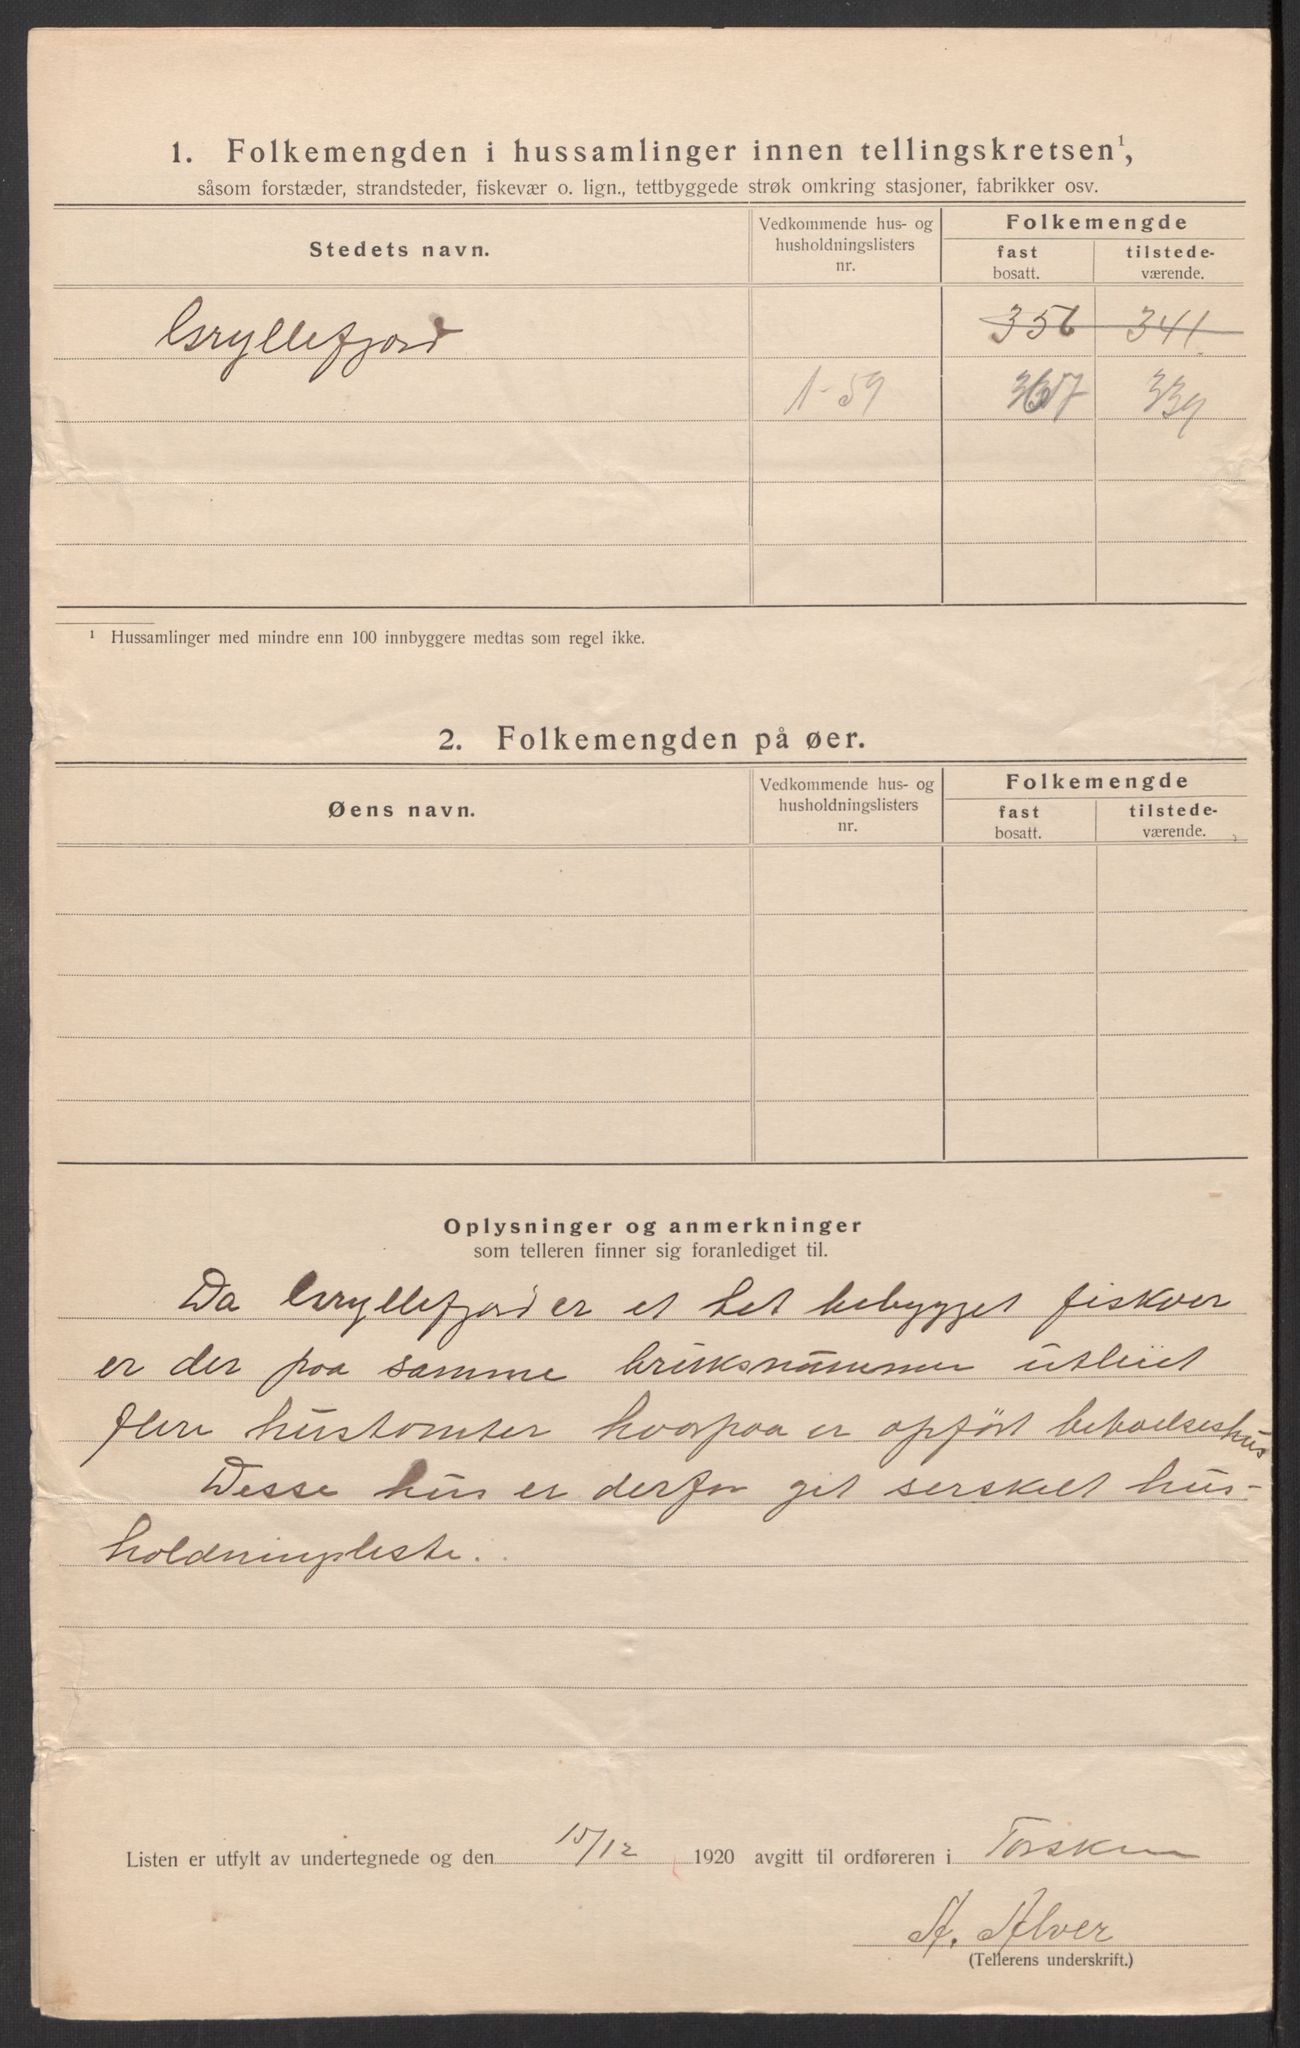 1. Folkemengden i hussamlinger innen tellingskretsen¹,
såsom forstæder, strandsteder, fiskevær o. lign., tettbyggede strøk omkring stasjoner, fabrikker osv.
Stedets navn.
Vedkommende hus- og
husholdningslisters
nr.
Folkemengde
fast
bosatt.
tilstede-
værende.
Gryllefjord
356 341
1-59 339
¹ Hussamlinger med mindre enn 100 innbyggere medtas som regel ikke.
2. Folkemengden på øer.
Øens navn.
Vedkommende hus- og
husholdningslisters
nr.
Folkemengde
fast
bosatt.
tilstede-
værende.
Oplysninger og anmerkninger
som telleren finner sig foranlediget til.
Da Gryllefjord er et tet bebygget fiskvær
er der paa samme bruksnummer utleiet
flere hustomter hvorpaa er opført beboelseshus
Desse hus er derfor git serskilt hus-
holdningsliste.
Listen er utfylt av undertegnede og den 15/12 1920 avgitt til ordføreren i Torsken
A. Alver
(Tellerens underskrift.)